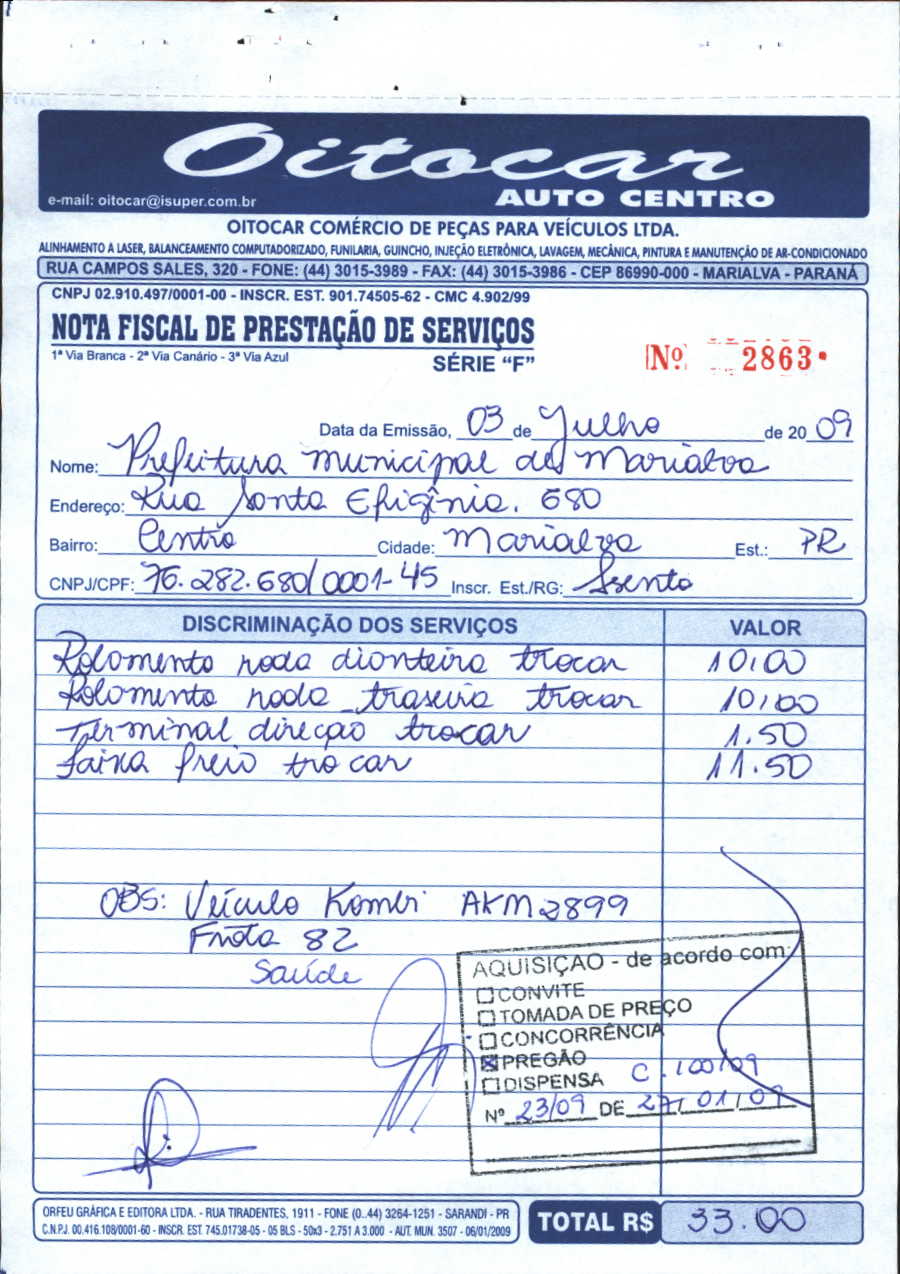 Oitocar
AUTO CENTRO
e-mail: oitocar@isuper.com.br
OITOCAR COMÉRCIO DE PEÇAS PARA VEÍCULOS LTDA.
ALINHAMENTO A LASER, BALANCEAMENTO COMPUTADORIZADO, FUNILARIA, GUINCHO, INJEÇÃO ELETRÔNICA, LAVAGEM, MECÂNICA, PINTURA E MANUTENÇÃO DE AR-CONDICIONADO
RUA CAMPOS SALES, 320 - FONE: (44) 3015-3989 - FAX: (44) 3015-3986 - CEP 86990-000 - MARIALVA - PARANÁ
CNPJ 02.910.497/0001-00 - INSCR. EST. 901.74505-62 - CMC 4.902/99
NOTA FISCAL DE PRESTAÇÃO DE SERVIÇOS
1ª Via Branca - 2ª Via Canário - 3ª Via Azul SÉRIE “F” Nº 2863
Data da Emissão, 03 de Julho de 2009
Nome: Prefeitura municipal de Marialva
Endereço: Rua Santa Efigênia. 680
Bairro: Centro Cidade: Marialva Est.: PR
CNPJ/CPF: 76.282.680/0001-45 Inscr. Est./RG: Isento
DISCRIMINAÇÃO DOS SERVIÇOS VALOR
Rolamento roda dianteira trocar 10,00
Rolamento roda traseira trocar 10,00
Terminal direção trocar 1.50
faixa freio trocar 11.50
OBS: Veículo Kombi AKM2899
Frota 82
Saúde
AQUISIÇÃO - de acordo com:
CONVITE
TOMADA DE PREÇO
CONCORRÊNCIA
PREGÃO
DISPENSA C. 100/09
Nº 23/09 DE 27/01/09
ORFEU GRÁFICA E EDITORA LTDA. - RUA TIRADENTES, 1911 - FONE (0..44) 3264-1251 - SARANDI - PR
C.N.P.J. 00.416.108/0001-60 - INSCR. EST. 745.01738-05 - 05 BLS - 50x3 - 2.751 A 3.000 - AUT. MUN. 3507 - 06/01/2009
TOTAL R$ 33.00